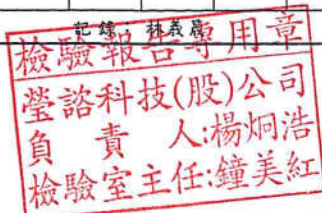 記錄：林義晨
檢驗報告專用章
瑩諮科技(股)公司
負責人:楊炯浩
檢驗室主任:鐘美紅